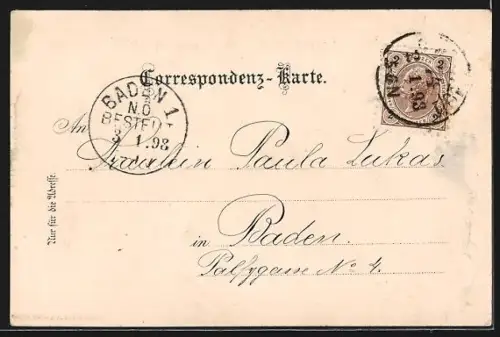 Correspondenz-Karte.
2
2
1 93
BADEN 1
N.Ö
BESTELLT
3 1 .98
An Fräulein Paula Lukas
in Baden.
Palffygasse No 4.
Nur für die Adresse.